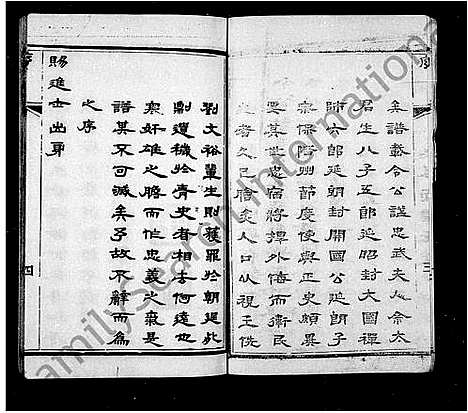 矣譜載令公諡忠武夫人佘太
君生八子五郎延昭封大國禪
師六郎延朝封開國公延朗子
宗保隋州節度使與正史頗異
要其世忠宿將捍外悔而衛民
之者久已膾炙人口以視王侁
劉文裕輩生則獲罪於朝廷死
則遺穢於青史者相去何遠也
寒奸雄之膽而作忠義之氣是
譜其不可滅矣予故不辭而為
之序
賜進士出身
三
四
FamilySearch International